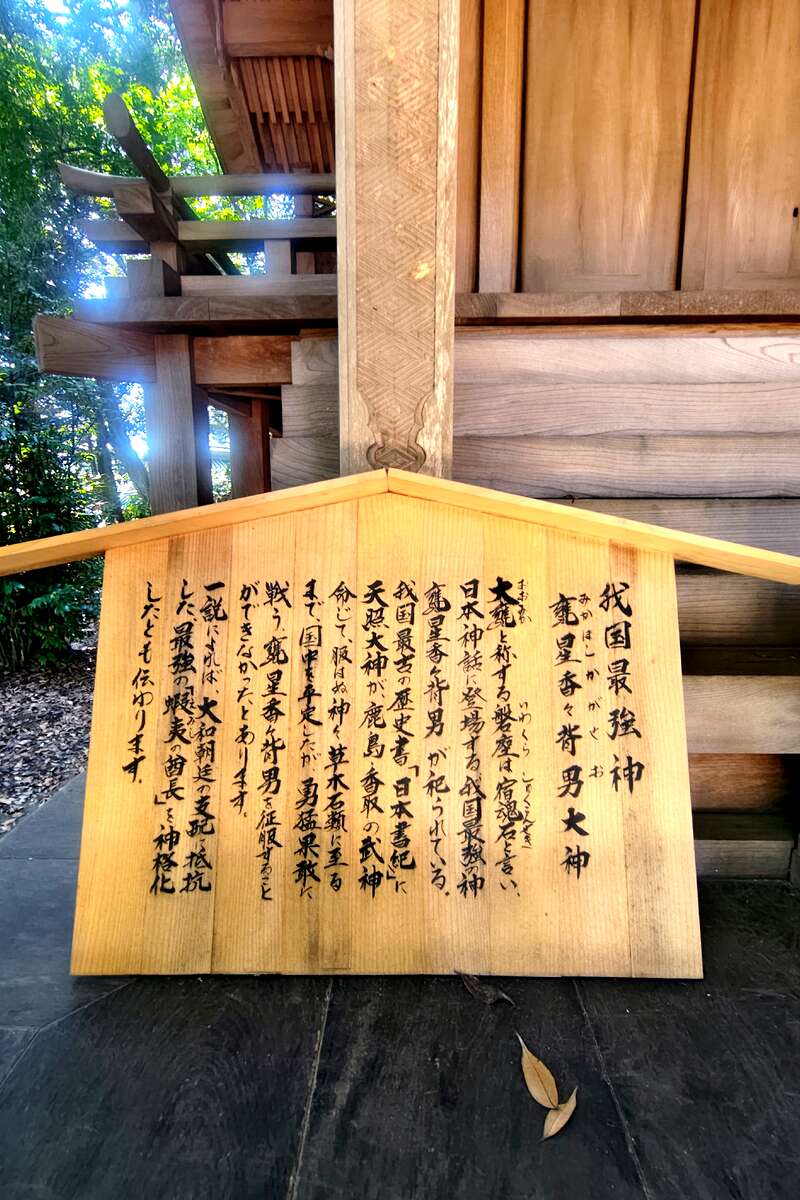 我国最強神
みかほしかがせお
甕星香々背男大神
おおみか
大甕と称する磐座は宿魂石と言い、
いわくら しゅくこんせき
日本神話に登場する我国最強の神
甕星香々背男が祀られている。
我国最古の歴史書「日本書紀」に
天照大神が鹿島・香取の武神
命じて、服はぬ神々草木石類に至る
まで、国中を平定したが、勇猛果敢に
戦う、甕星香々背男を征服すること
ができなかったとあります。
一説によれば、大和朝廷の支配に抵抗
した最強の「蝦夷の酋長」を神格化
えみし
したとも伝わります。